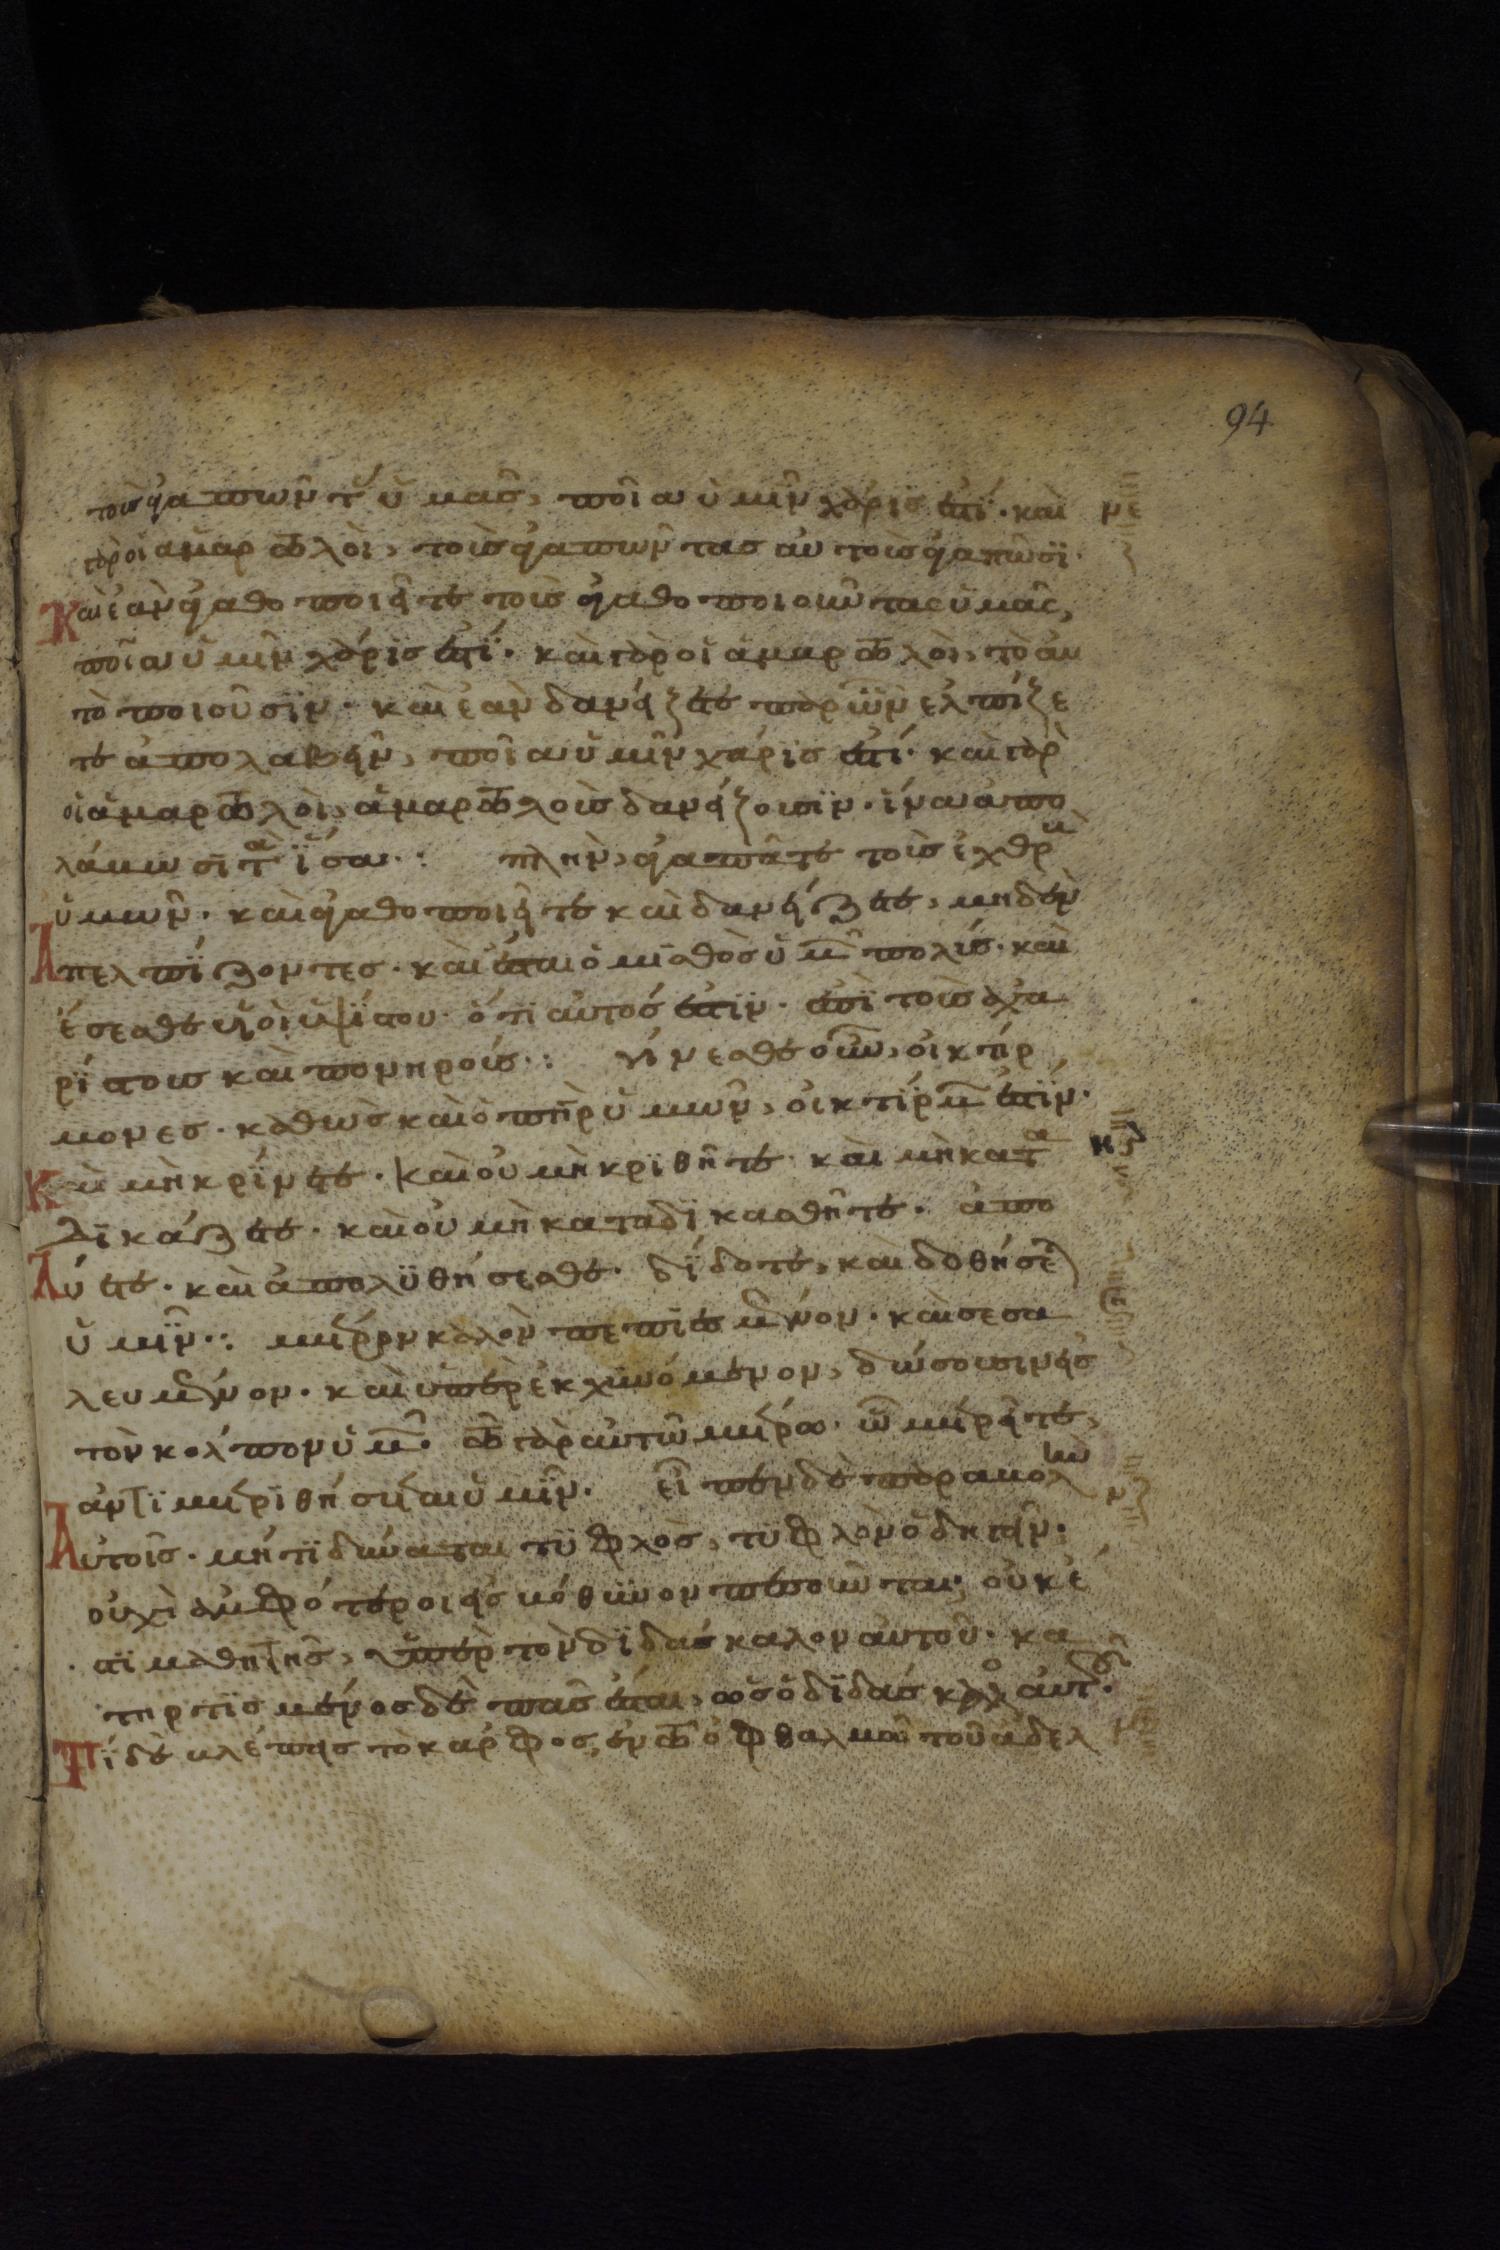 94
τοὺς ἀγαπῶντ ὑμᾶς, ποία ὑμῖν χάρις ἐστί· καὶ
γὰρ οἱ ἁμαρτωλοὶ, τοὺς ἀγαπῶντας αὐτοὺς ἀγαπῶσι·
Καὶ ἐὰν ἀγαθοποιῆτε τοὺς ἀγαθοποιοῦντας ὑμᾶς,
ποία ὑμῖν χάρις ἐστί· καὶ γὰρ οἱ ἁμαρτωλοὶ, τὸ αὐ
τὸ ποιοῦσιν· καὶ ἐὰν δανείζετε παρ ὧν ἐλπίζε
τε ἀπολαβεῖν, ποία ὑμῖν χάρις ἐστί· καὶ γὰρ
οἱ ἁμαρτωλοὶ, ἁμαρτωλοῖς δανείζουσιν· ἵνα ἀπο
λάβωσι τὰ ἴσα·: πλὴν, ἀγαπᾶτε τοὺς ἐχθροὺ
ὑμῶν· καὶ ἀγαθοποιεῖτε καὶ δανείζετε, μηδὲν
Ἀπελπίζοντες· καὶ ἔσται ὁ μισθὸς ὑμῶν πολύς· καὶ
ἔσεσθε υἱοὶ ὑψίστου· ὅτι αὐτός ἐστιν· ἐπὶ τοὺς ἀχα
ρίστους καὶ πονηρούς·: γίνεσθε οὖν, οἰκτίρ
μονες· καθὼς καὶ ὁ πηρ ὑμῶν, οἰκτίρμων ἐστίν·
Καὶ μὴ κρίνετε· καὶ οὐ μὴ κριθῆτε· καὶ μὴ κατα
δικάζετε· καὶ οὐ μὴ καταδικασθῆτε· ἀπο
Λύετε· καὶ ἀπολυθήσεσθε· δίδοτε, καὶ δοθήσεται
ὑμῖν·: μέτρον καλὸν πεπιεσμένον· καὶ σεσα
λευμένον· καὶ ὑπερεκχυνόμενον, δώσουσιν εἰς
τὸν κόλπον ὑμῶν· τῶ γὰρ αὐτῶ μέτρω· ὧ μετρεῖτε,
ἀντιμετρηθήσεται ὑμῖν· εἶπεν δὲ παραβολὴν
Αὐτοῖς· μήτι δύναται τυφλὸς, τυφλὸν ὁδηγεῖν·
οὐχὶ ἀμφότεροι εἰς βόθυνον πεσοῦνται· οὐκ ἔ
στι μαθητὴς, ὑπὲρ τὸν διδάσκαλον αὐτοῦ· κα
τηρτισμένος δὲ πᾶς ἔσται, ὡς ὁ διδάσκαλος αὐτοῦ·
Τί δὲ βλέπεις τὸ κάρφος, ἐν τῶ ὀφθαλμῶ τοῦ ἀδελ